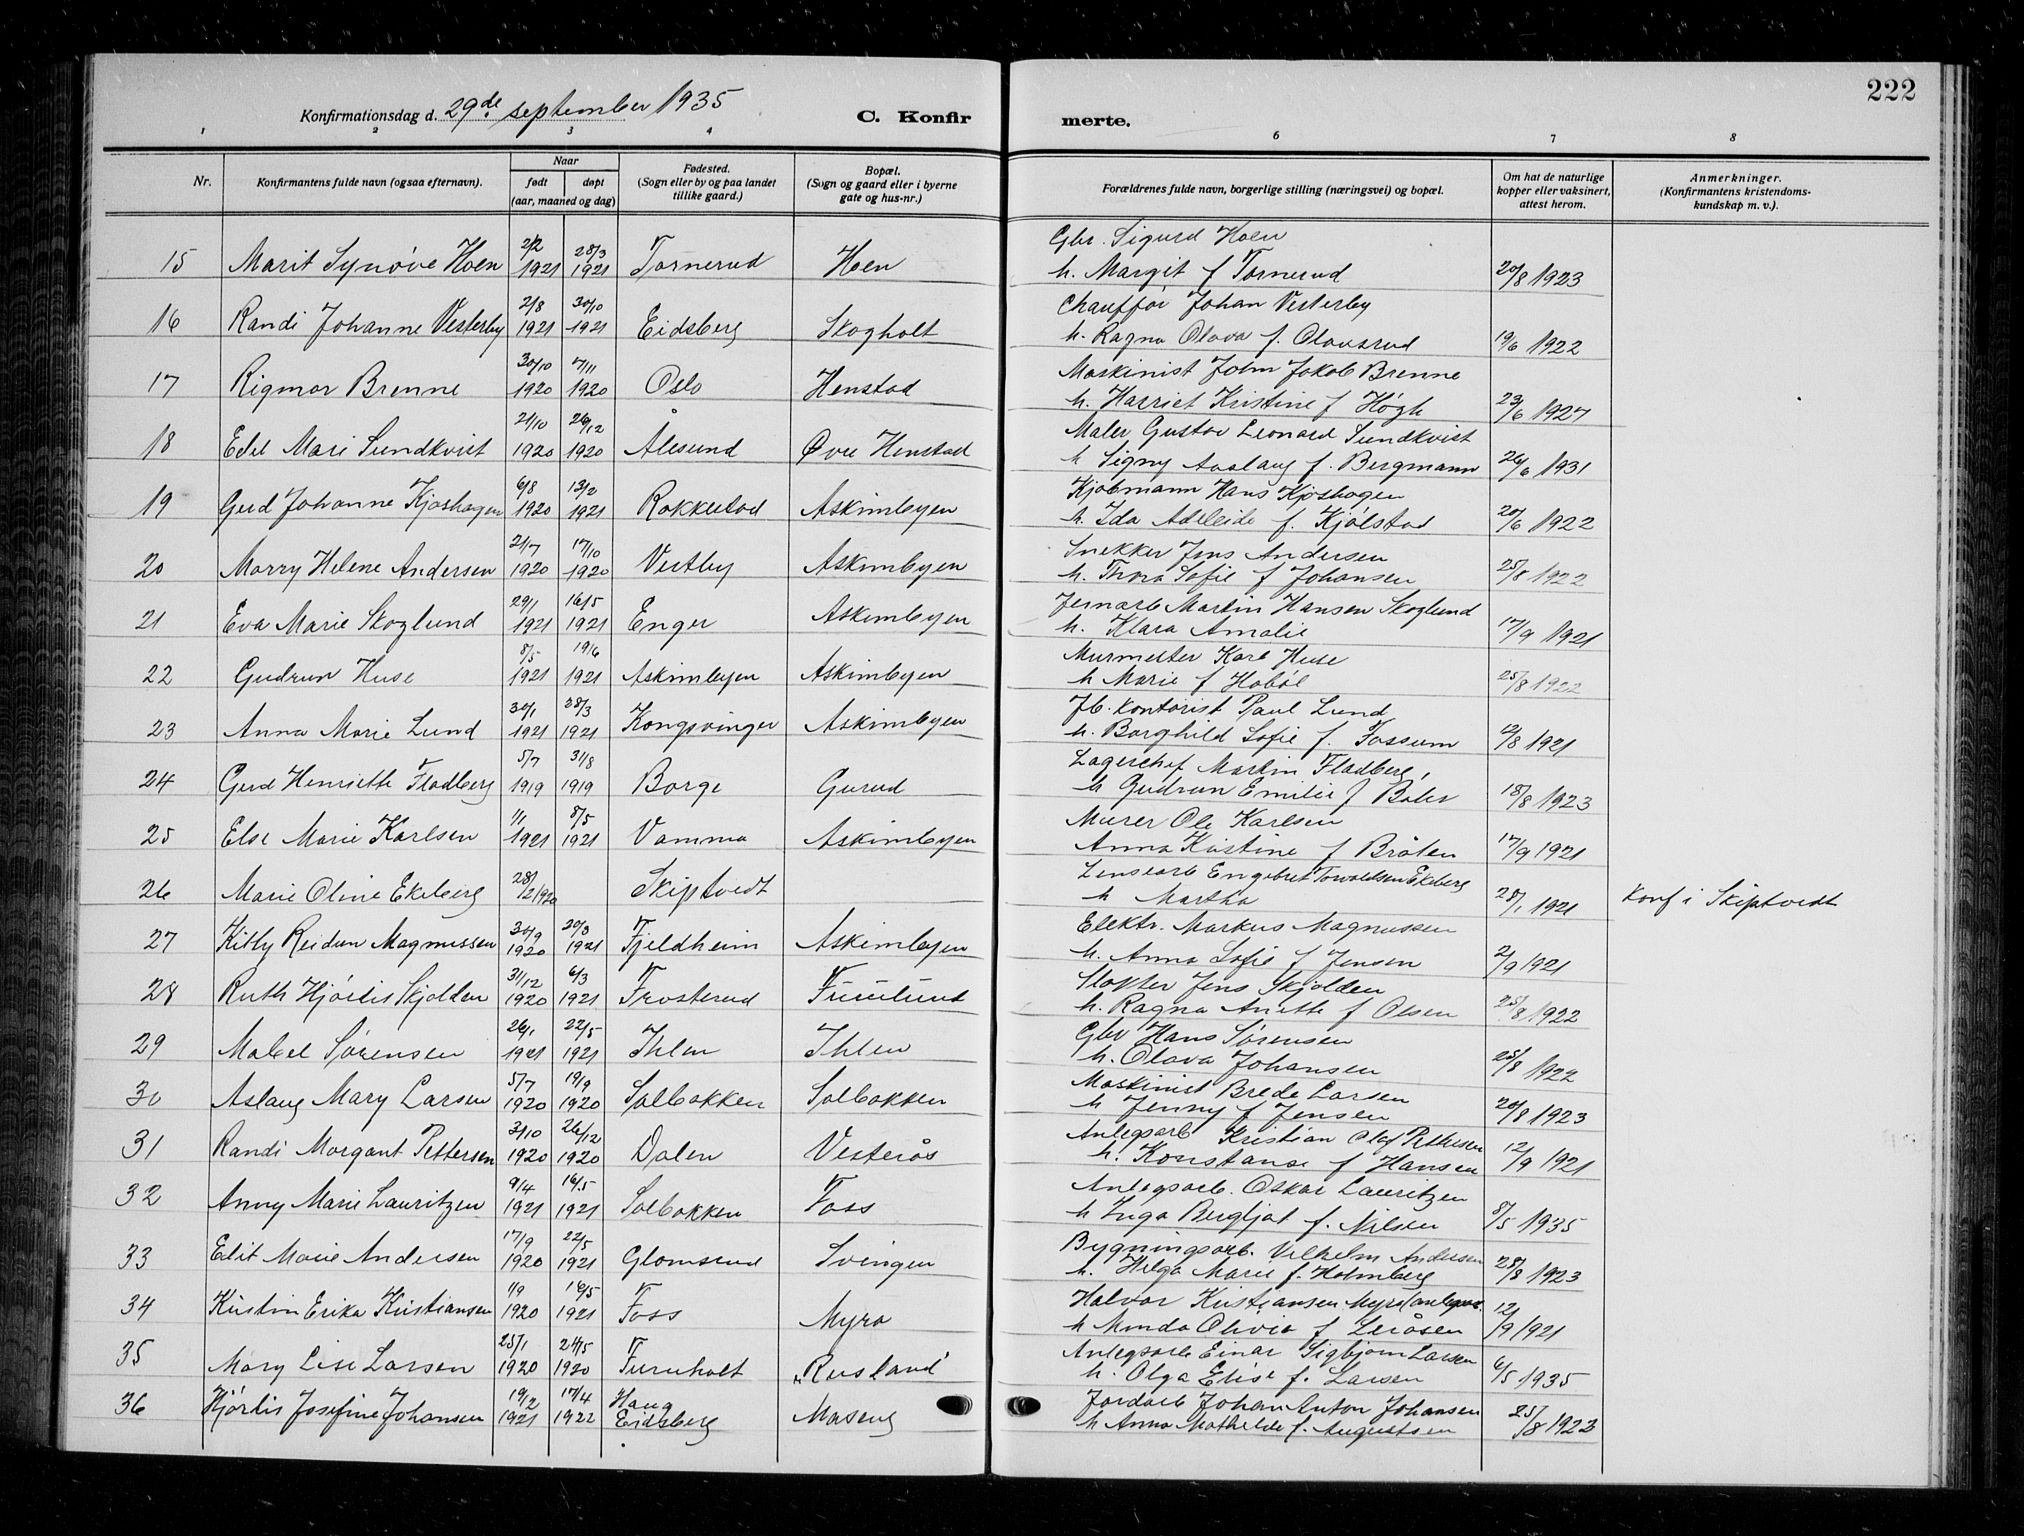 222
Konfirmationsdag d. 29de september 1935
C. Konfirmerte.
1 2 3 4 6 7 8
Nr.
Konfirmantens fulde navn (ogsaa efternavn).
Naar
født døpt
(aar, maaned og dag)
Fødested.
(Sogn eller by og paa landet
tillike gaard.)
Bopæl.
(Sogn og gaard eller i byerne
gate og hus-nr.)
Forældrenes fulde navn, borgerlige stilling (næringsvei) og bopæl.
Om hat de naturlige
kopper eller vaksinert,
attest herom.
Anmerkninger.
(Konfirmantens kristendoms-
kundskap m. v.).
2/2 28/3 Gbr. Sigurd Hoen
15 Marit Synøve Hoen 1921 1921 Tornerud Hoen h. Margit f Tornerud 20/8 1923
2/8 30/10 Chauffør Johan Vesterby
16 Randi Johanne Vesterby 1921 1921 Eidsberg Skogholt h. Ragna Olava f. Olausrud 19/6 1922
30/10 7/11 Maskinist John Jakob Brenne
17 Rigmor Brenne 1920 1920 Oslo Henstad h. Harriet Kristine f Høgh 23/6 1927
21/10 26/12 Maler Gustav Leonard Sundkvist
18 Edel Mari Sundkvist 1920 1920 Ålesund Øvre Henstad h Signy Aaslaug f. Bergmann 26/6 1931
6/8 13/2 Kjøbmann Hans Kjoshagen
19 Gerd Johanne Kjoshagen 1920 1921 Rakkestad Askimbyen h. Ida Adeleide f. Kjølstad 20/6 1922
21/7 17/10 Snekker Jens Andersen
20 Marry Helene Andersen 1920 1920 Vestby Askimbyen h. Thora Sofie f Johansen 25/8 1922
29/1 16/5 Jernarb Martin Hansen Skoglund
21 Eva Marie Skoglund 1921 1921 Enger Askimbyen h. Klara Amalie 17/9 1921
8/5 19/6 Murmester Karl Huse
22 Gudrun Huse 1921 1921 Askimbyen Askimbyen h Marie f Hobøl 25/8 1922
30/1 28/3 Jb. Kontorist Paul Lund
23 Anna Marie Lund 1921 1921 Kongsvinger Askimbyen h. Borghild Sofie f. Fossum 12/8 1921
5/7 31/8 Lagerchef Martin Fladberg,
24 Gerd Henriette Fladberg 1919 1919 Borge Gurud h Gudrun Emilie f 18/8 1923
1/1 8/5 Murer Ole Karlsen
25 Else Marie Karlsen 1921 1921 Vamma Askimbyen Anna Kristine f Bråten 17/9 1921
28/ Lensearb Engebret Torvaldsen Ekeberg
26 Marie Oline Ekeberg 12/1920 Skiptvedt h Martha 28/1 1921 Konf i Skiptvedt
30/9 20/3 Elektr. Markus Magnussen
27 Kitty Reidun Magnussen 1920 1921 Fjeldheim Askimbyen h. Anna Sofie f Jensen 2/9 1921
31/12 6/3 Jens Skjolden
28 Ruth Hjørdis Skjolden 1920 1921 Frosterud Furulund h. Ragna Anette f Olsen 25/8 1922
26/1 22/5 Gbr Hans Sørensen
29 Mabel Sørensen 1921 1921 Ihlen Ihlen h. Olava Johansen 25/8 1922
5/7 19/9 Maskinist Brede Larsen
30 Aslaug Mary Larsen 1920 1920 Solbakken Solbakken h Jenny f Jensen 20/8 1923
3/10 26/12 Anlegsarb Kristian Olaf Pettersen
31 Randi Margant Pettersen 1920 1920 Dalen Vesterås h. Konstanse f Hansen 12/9 1921
9/4 16/5 Anlegsarb. Oskar Lauritzen
32 Anny Marie Lauritzen 1921 1921 Solbakken Foss h Inga Bergljot f. Nilsen 8/5 1935
17/9 22/5 Bygningsarb. Vilhelm Andersen
33 Edit Marie Andersen 1920 1921 Glomsrud Svingen h. Helga Marie f. Holmberg 28/8 1923
1/9 16/5 Halvor Kristiansen Myra (anlegsar.
34 Kristin Erika Kristiansen 1920 1921 Foss Myra h Minda Olivia f Leråsen 12/9 1921
25/1 24/5 Anlegsarb Einar Sigbjørn Larsen
35 Mary Lise Larsen 1920 1920 Furuholt „Rusland" h. Olga Elise f. Larsen 6/5 1935
19/2 17/4 Haug Jordarb Johan Anton Johansen
36 Hjørdis Josefine Johansen 1921 1922 Eidsberg Maseng h Anna Mathilde f. Augustsen 25/8 1923